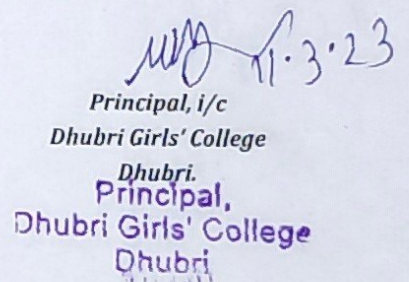 11.3.23
Principal, i/c
Dhubri Girls' College
Dhubri.
Principal,
Dhubri Girls' College
Dhubri